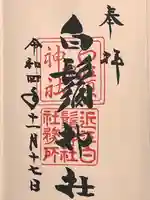 奉拝
白鬚神社
令和四年十二月十七日
神社
近江白
鬚神社
社務所